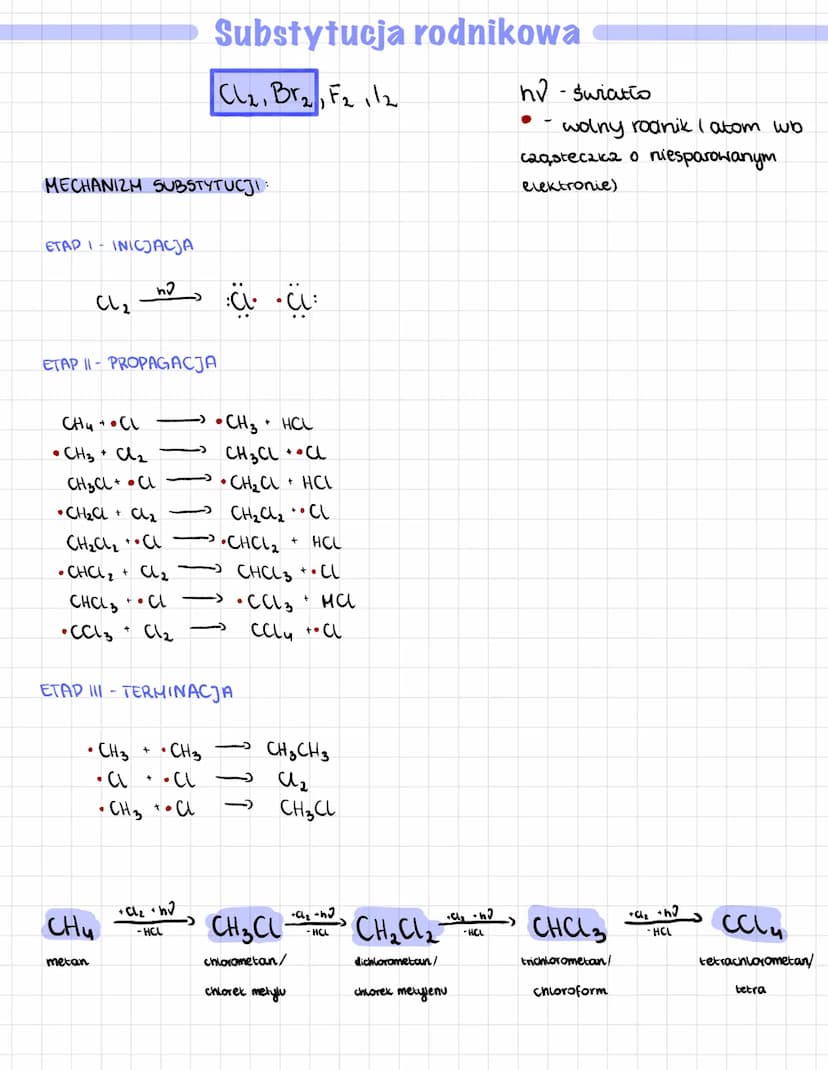 Substytucja rodnikowa
Cl₂, Br₂, F₂, I₂
hν - światło
• - wolny rodnik (atom lub
cząsteczka o niesparowanym
elektronie)
MECHANIZM SUBSTYTUCJI:
ETAP I - INICJACJA
Cl₂ hν → :C̈l• •C̈l:
ETAP II - PROPAGACJA
CH₄ + •Cl → •CH₃ + HCl
•CH₃ + Cl₂ → CH₃Cl + •Cl
CH₃Cl + •Cl → •CH₂Cl + HCl
•CH₂Cl + Cl₂ → CH₂Cl₂ + •Cl
CH₂Cl₂ + •Cl → •CHCl₂ + HCl
•CHCl₂ + Cl₂ → CHCl₃ + •Cl
CHCl₃ + •Cl → •CCl₃ + HCl
•CCl₃ + Cl₂ → CCl₄ + •Cl
ETAP III - TERMINACJA
•CH₃ + •CH₃ → CH₃CH₃
•Cl + •Cl → Cl₂
•CH₃ + •Cl → CH₃Cl
+Cl₂ +hν +Cl₂ +hν +Cl₂ +hν +Cl₂ +hν
CH₄ → CH₃Cl → CH₂Cl₂ → CHCl₃ → CCl₄
-HCl -HCl -HCl -HCl
metan chlorometan/ dichlorometan/ trichlorometan/ tetrachlorometan/
chlorek metylu chlorek metylenu chloroform tetra